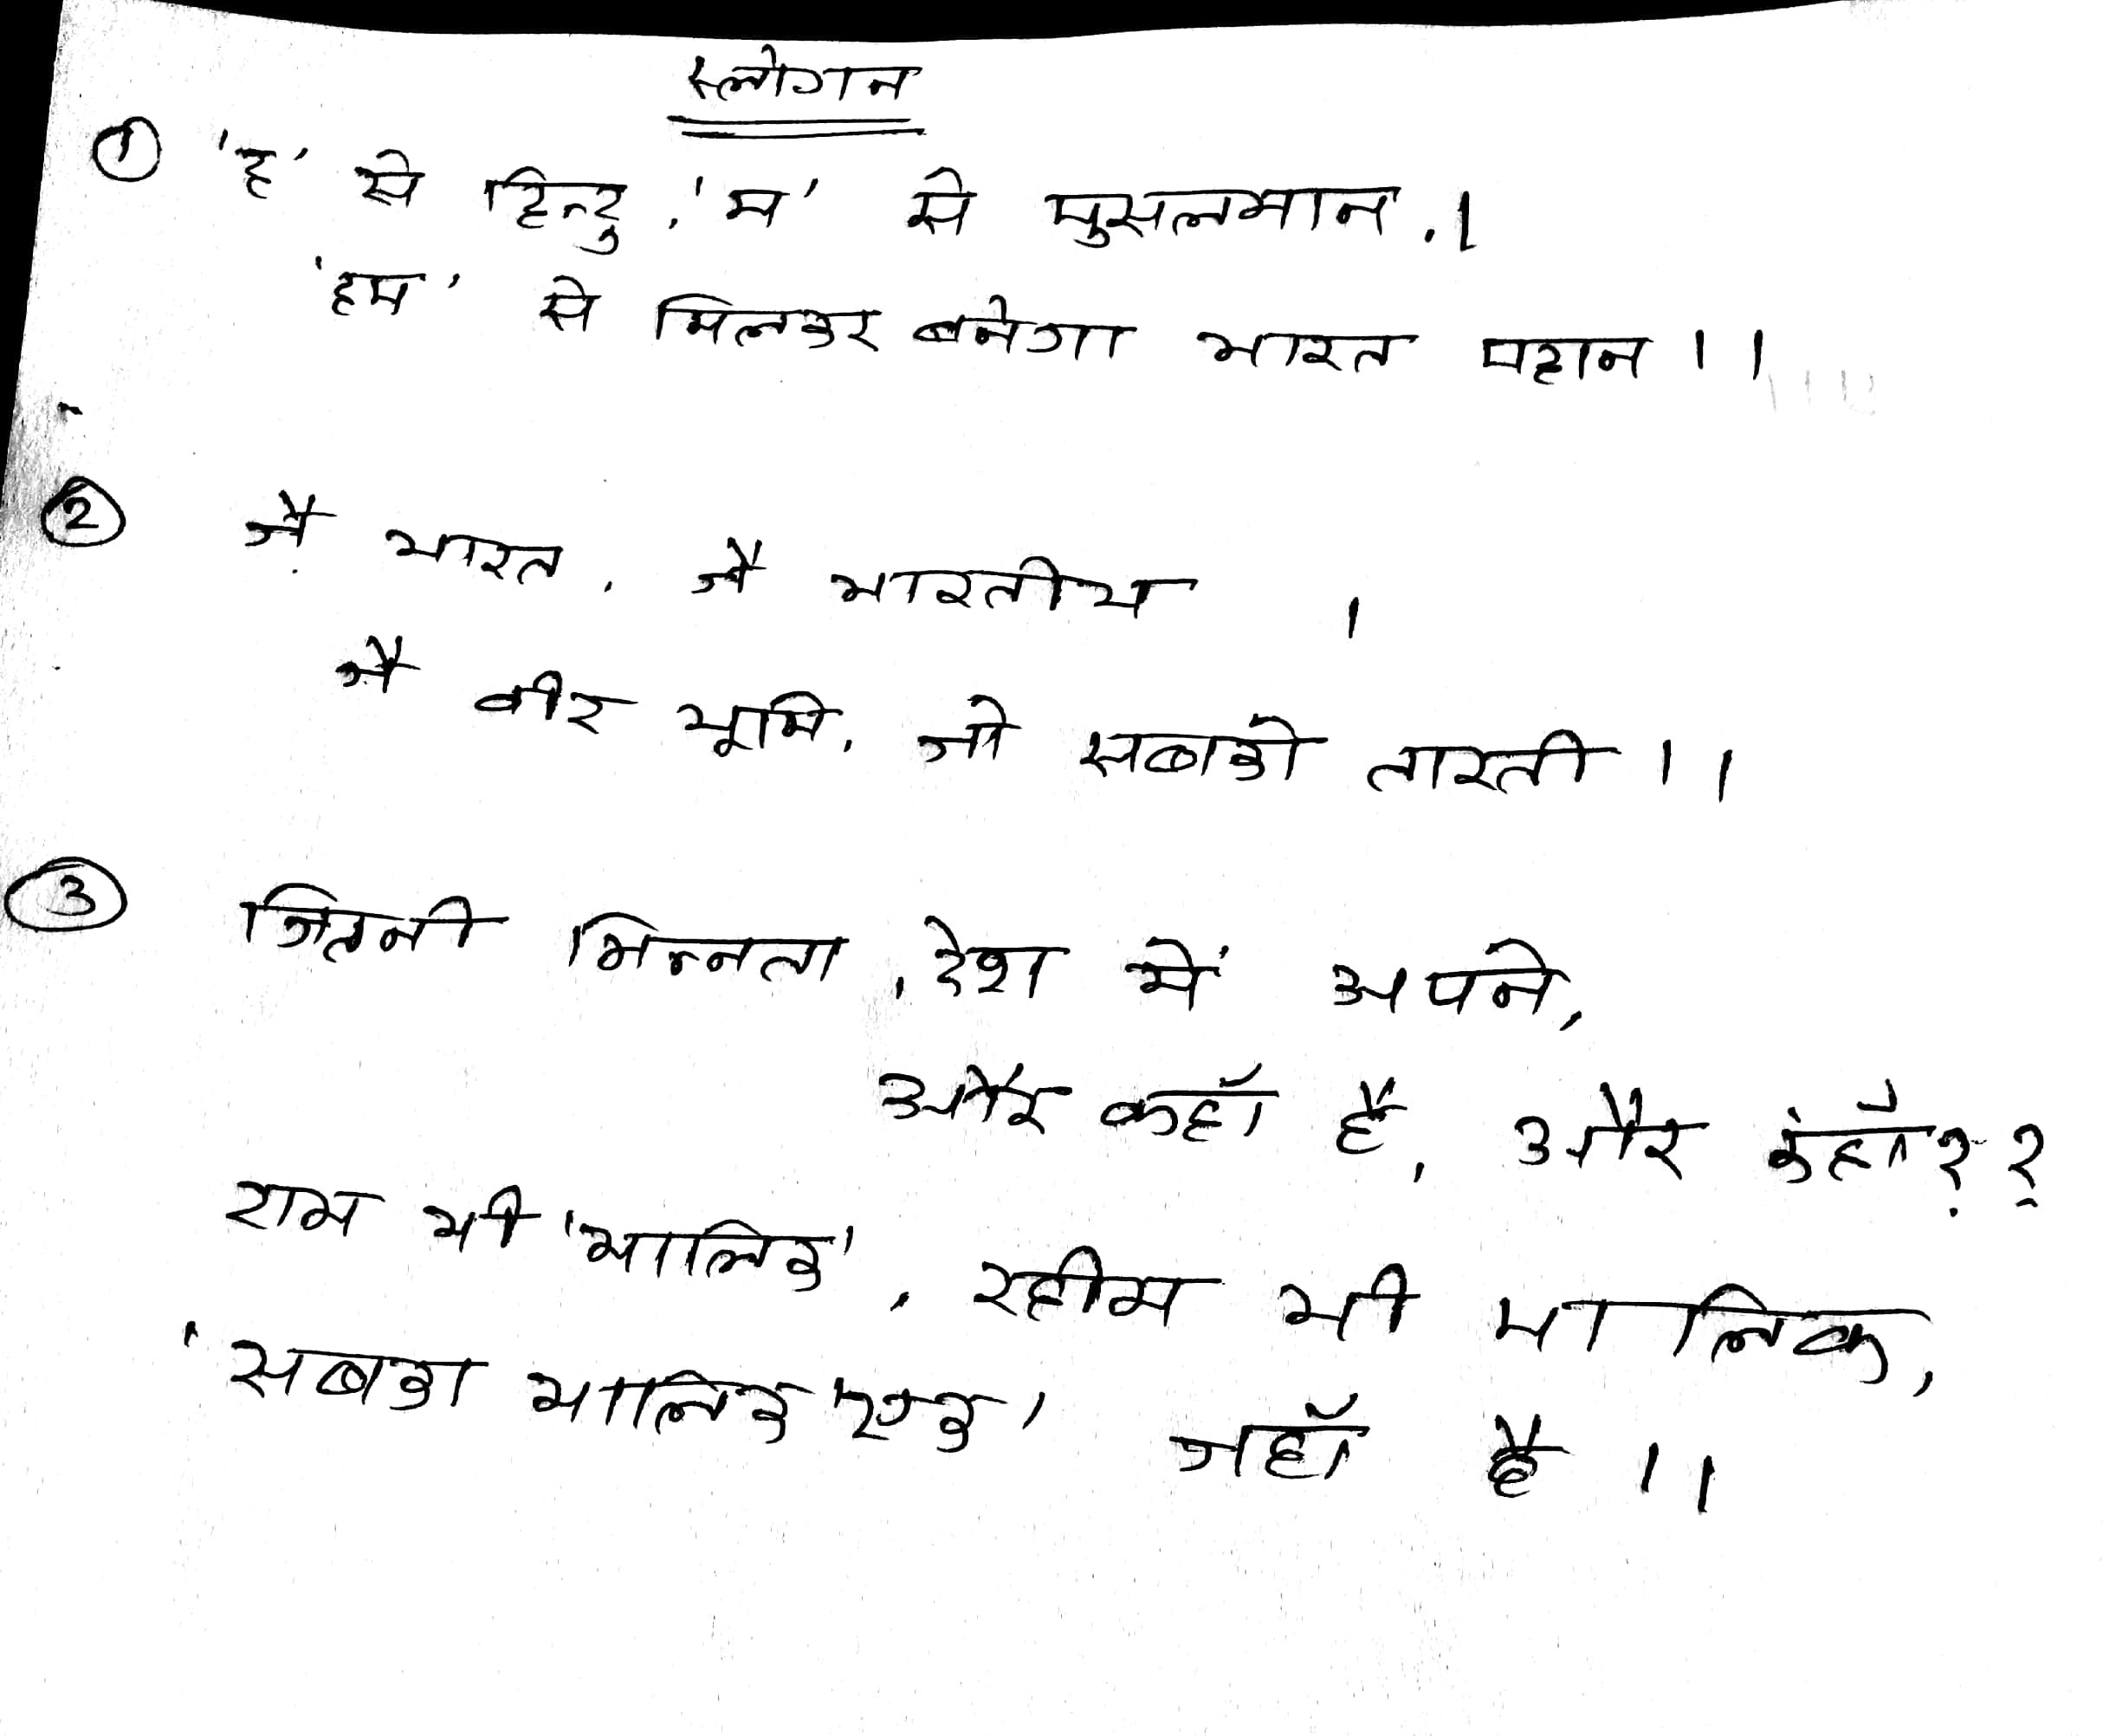 स्लोगन
① 'ह' से हिन्दु, 'म' से मुसलमान.।
'हम' से मिलकर बनेगा भारत महान।।
② जै भारत, जै भारतीय ।
जै वीर भूमि, जो सबको तारती ।।
③ जितनी भिन्नता, देश में अपने,
और कहाँ है, और कहाँ??
राम भी 'मालिक', रहीम भी मालिक,
'सबका मालिक एक' जहाँ है ।।